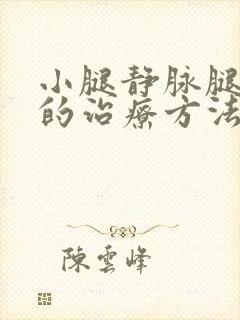 小腿静脉腿
的治療方法
陳雲峰